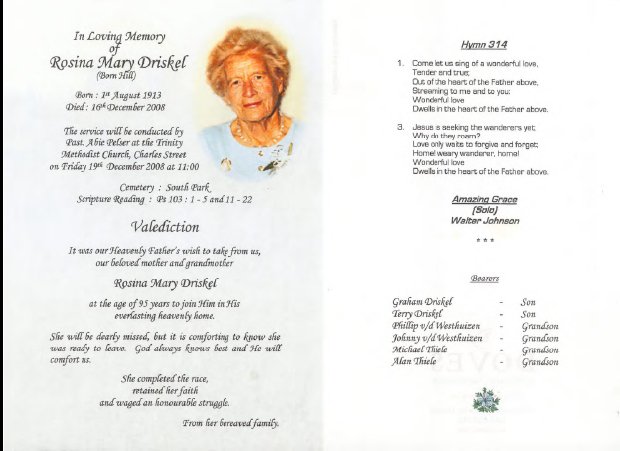 In Loving Memory
of
Rosina Mary Driskel
(Born Hill)
Born : 1st August 1913
Died : 16th December 2008
The service will be conducted by
Past. Abie Pelser at the Trinity
Methodist Church, Charles Street
on Friday 19th December 2008 at 11:00
Cemetery : South Park
Scripture Reading : Ps 103 : 1 - 5 and 11 - 22
Valediction
It was our Heavenly Father's wish to take from us,
our beloved mother and grandmother
Rosina Mary Driskel
at the age of 95 years to join Him in His
everlasting heavenly home.
She will be dearly missed, but it is comforting to know she
was ready to leave. God always knows best and He will
comfort us.
She completed the race,
retained her faith
and waged an honourable struggle.
From her bereaved family.
Hymn 314
1. Come let us sing of a wonderful love,
Tender and true;
Out of the heart of the Father above,
Streaming to me and to you:
Wonderful love
Dwells in the heart of the Father above.
3. Jesus is seeking the wanderers yet;
Why do they roam?
Love only waits to forgive and forget;
Home! weary wanderer, home!
Wonderful love
Dwells in the heart of the Father above.
Amazing Grace
(Solo)
Walter Johnson
* * *
Bearers
Graham Driskel - Son
Terry Driskel - Son
Phillip v/d Westhuizen - Grandson
Johnny v/d Westhuizen - Grandson
Michael Thiele - Grandson
Alan Thiele - Grandson